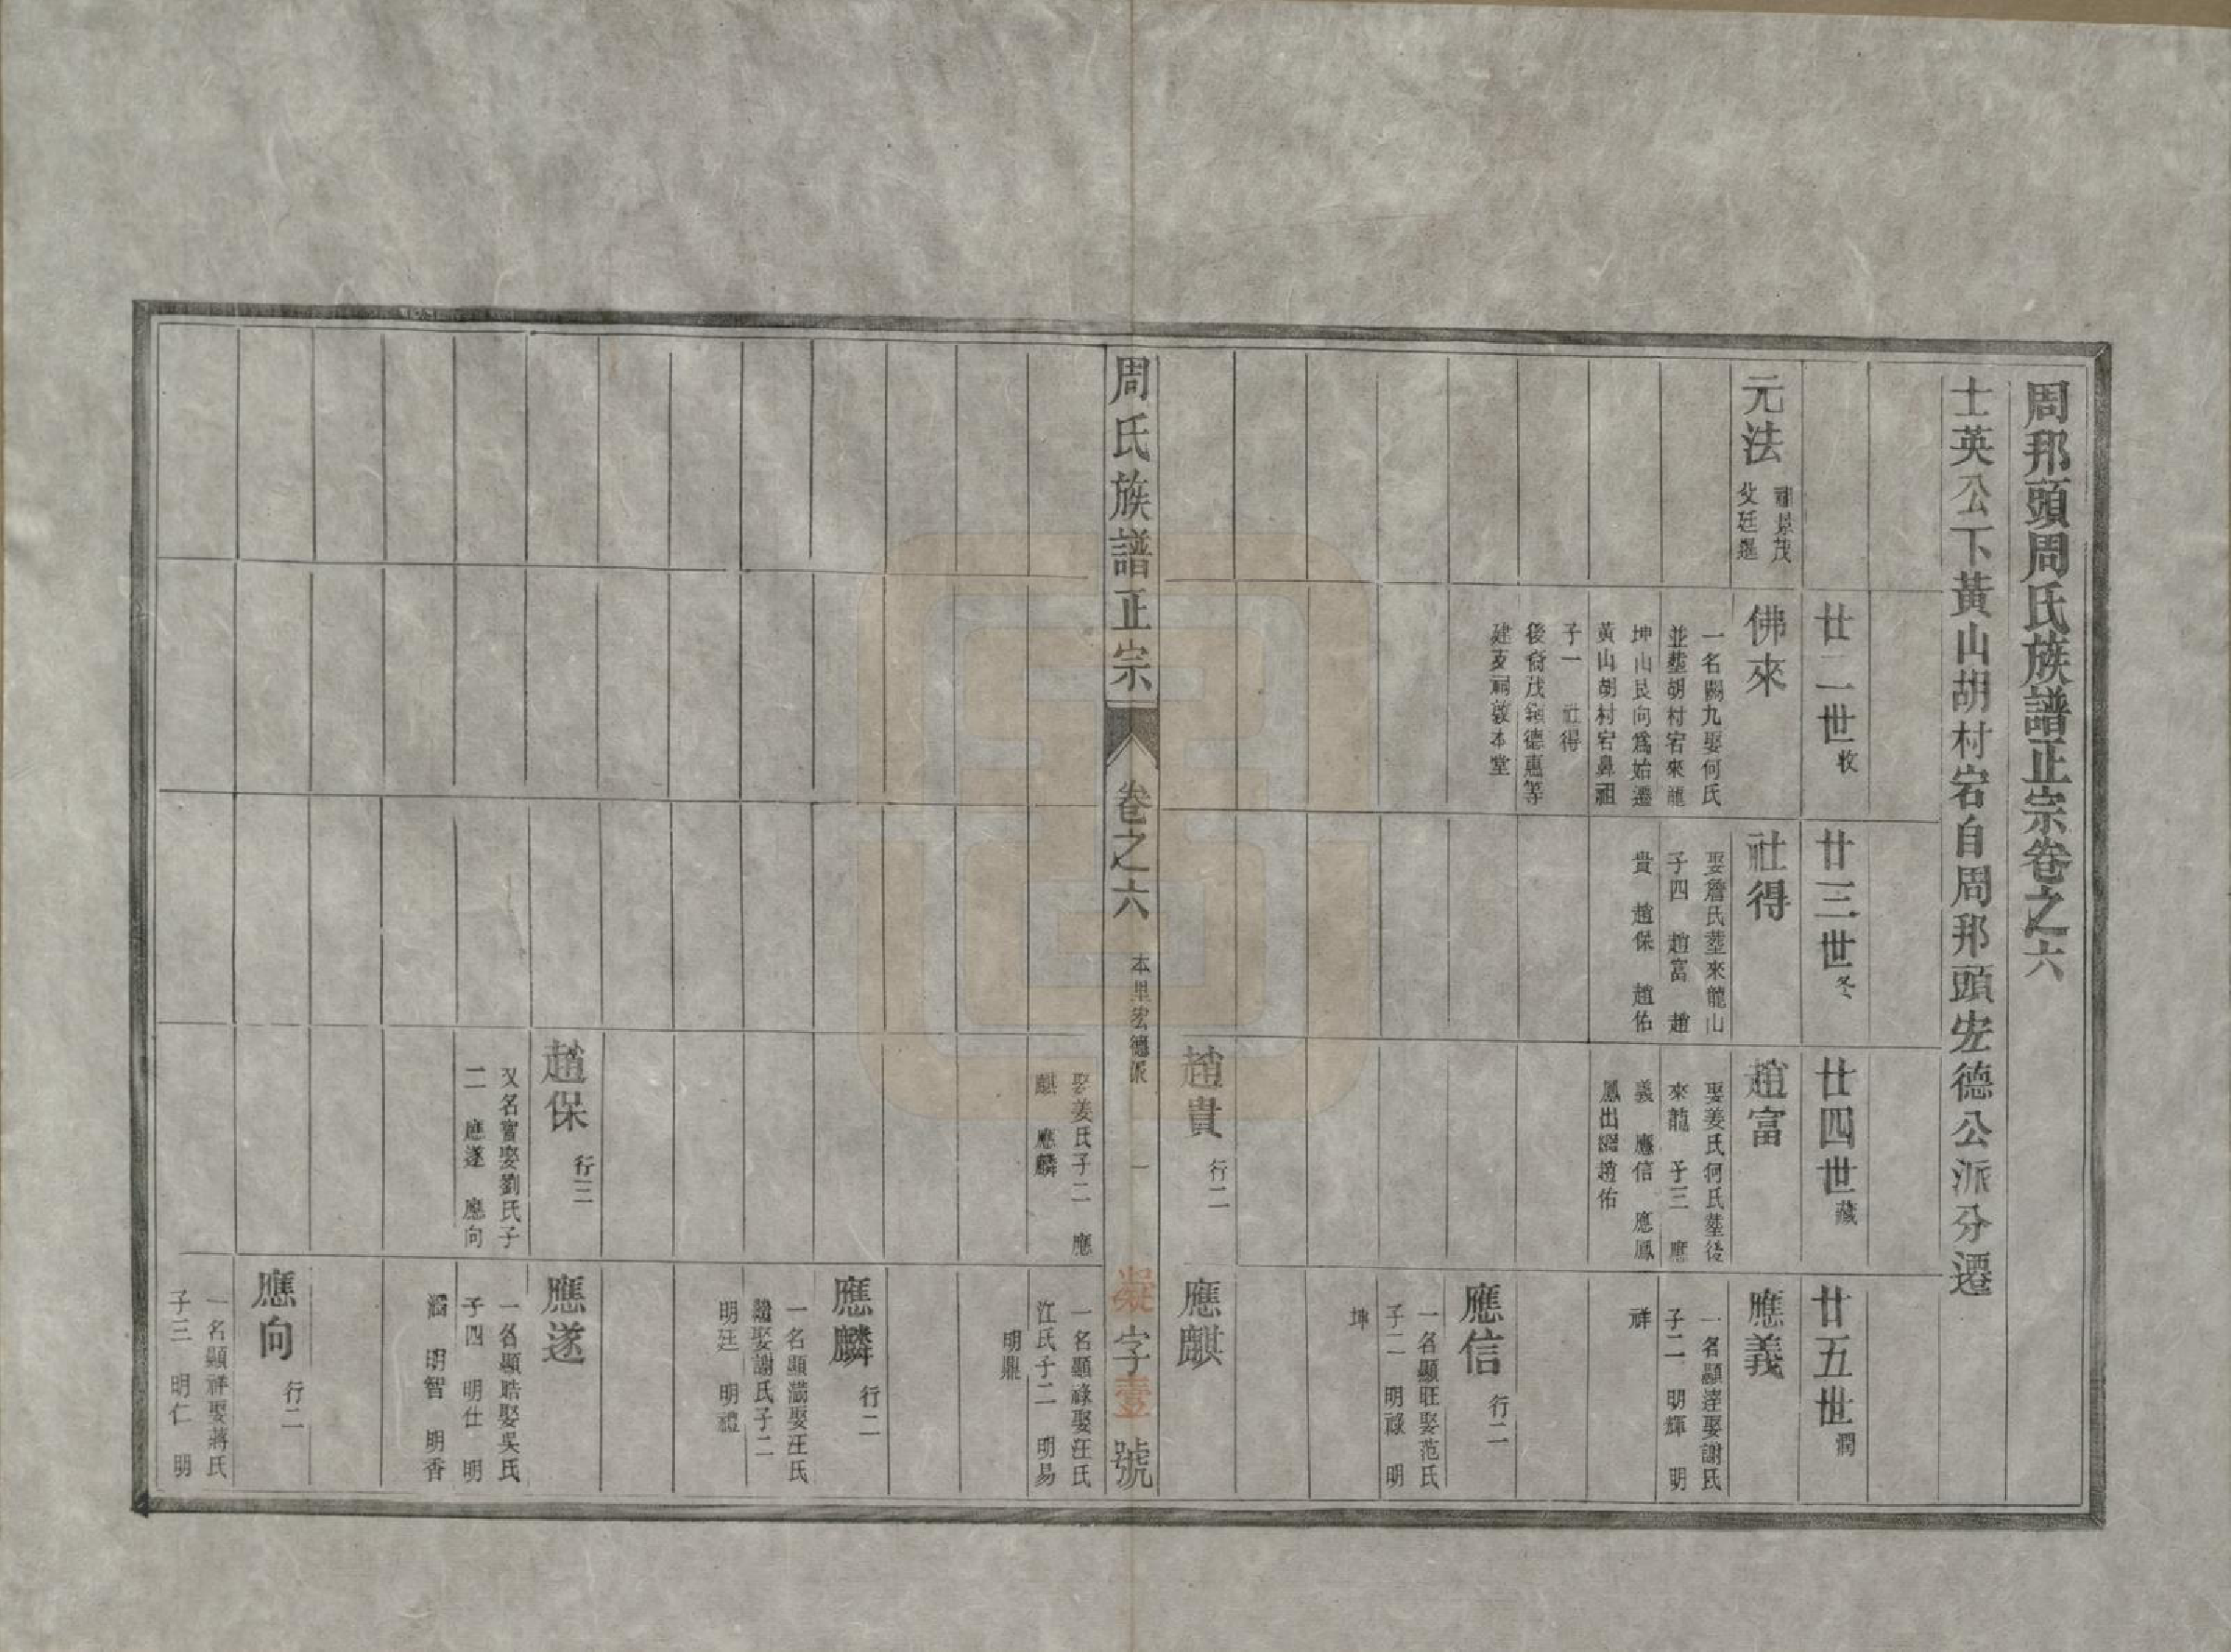 周邦頭周氏族譜正宗卷之六
士英公下黃山胡村宕自周邦頭宏德公派分遷
廿二世牧
廿三世冬
廿四世藏
廿五世潤
元法
祠景茂
父廷暹
佛來
一名關九娶何氏
並塟胡村宕來龍
坤山艮向爲始遷
黃山胡村宕鼻祖
子一 社得
後裔茂穎德惠等
建支祠敦本堂
社得
娶詹氏塟來龍山
子四 趙富 趙
貴 趙保 趙佑
趙富
娶姜氏何氏塟後
來龍 子三 應
義 應信 應鳳
鳳出繼趙佑
應義
一名顯達娶謝氏
子二 明輝 明
祥
應信 行二
一名顯旺娶范氏
子二 明祿 明
坤
趙貴 行二
應麒
周氏族譜正宗
卷之六
本里宏德派
一
凝字壹號
娶姜氏子二 應
麒 應麟
一名顯祿娶汪氏
江氏子二 明易
明鼎
應麟 行二
一名顯滿娶汪氏
繼娶謝氏子二
明廷 明禮
趙保 行三
又名寳娶劉氏子
二 應遂 應向
應遂
一名顯晧娶吳氏
子四 明仕 明
滔 明智 明香
應向 行二
一名顯祥娶蔣氏
子三 明仁 明